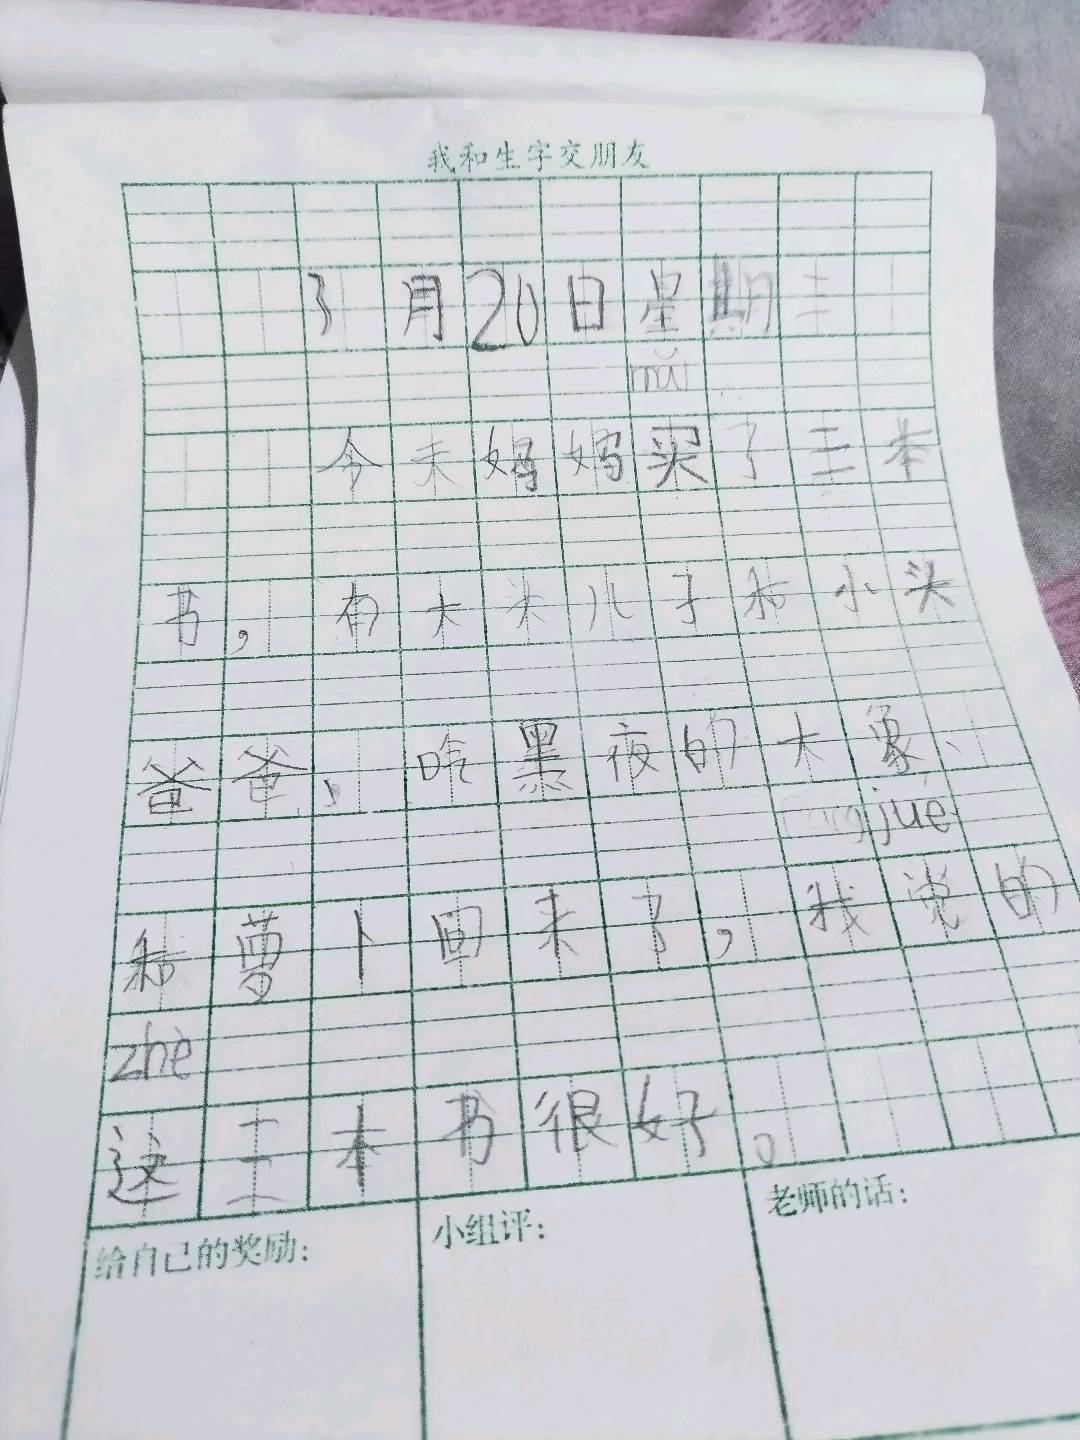 我和生字交朋友
3月20日星期三
mǎi
今天妈妈买了三本
书，有大头儿子和小头
爸爸、哈黑夜的大象、
jué
和萝卜回来了，我觉的
zhè
这三本书很好。
给自己的奖励：
小组评：
老师的话：